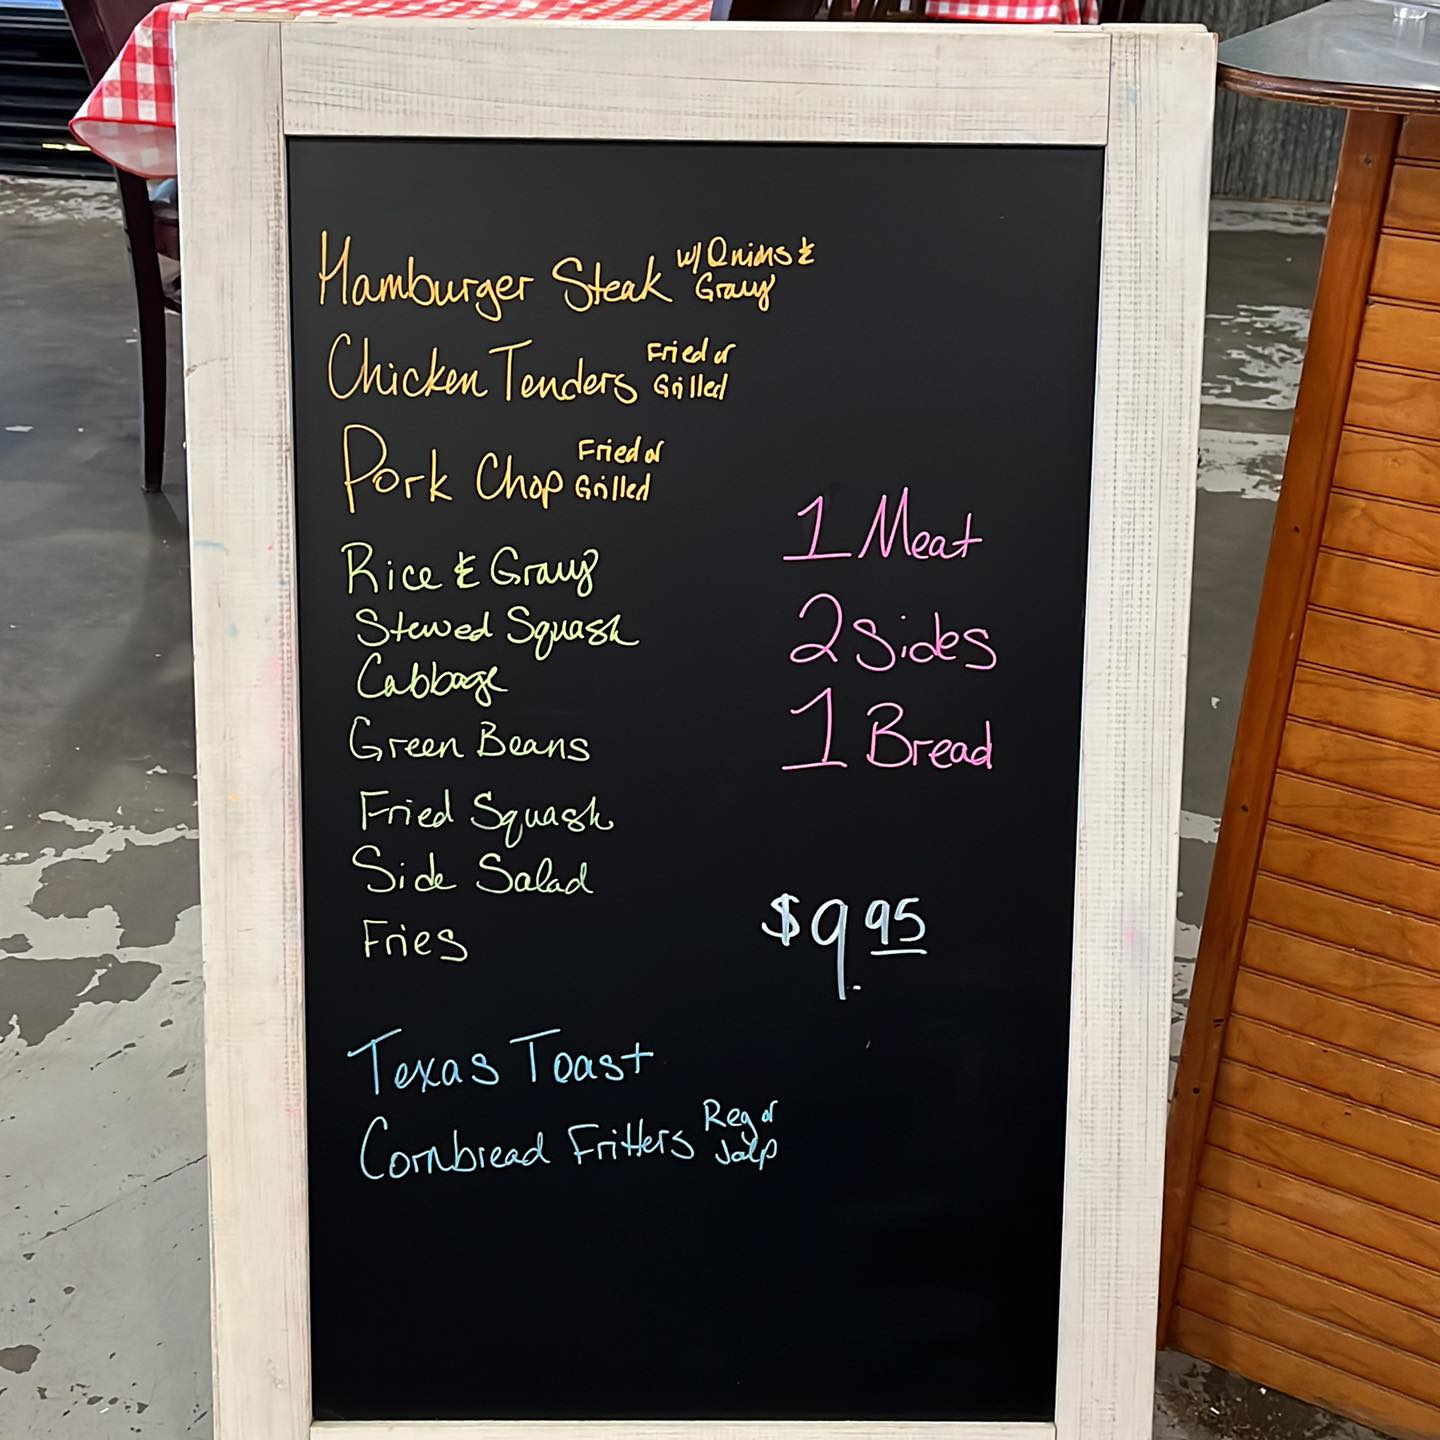 Hamburger Steak w/ Onions & Gravy
Chicken Tenders Fried or Grilled
Pork Chop Fried or Grilled
Rice & Gravy
Stewed Squash
Cabbage
Green Beans
Fried Squash
Side Salad
Fries
1 Meat
2 Sides
1 Bread
$9.95
Texas Toast
Cornbread Fritters Reg or Jalp